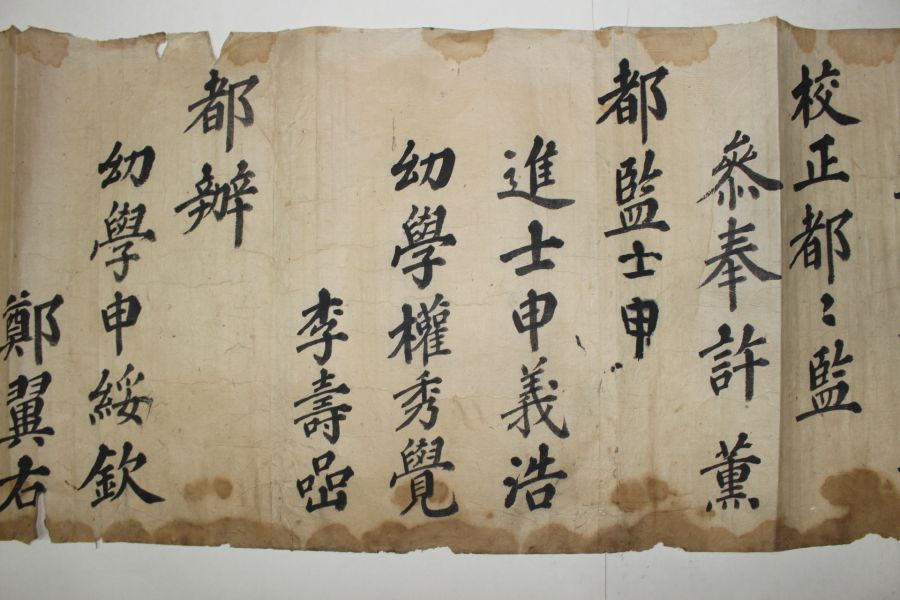 校正都〻監
叅奉許 薰
都監士申
進士申義浩
幼學權秀覺
李壽嵒
都辦
幼學申綏欽
鄭翼右